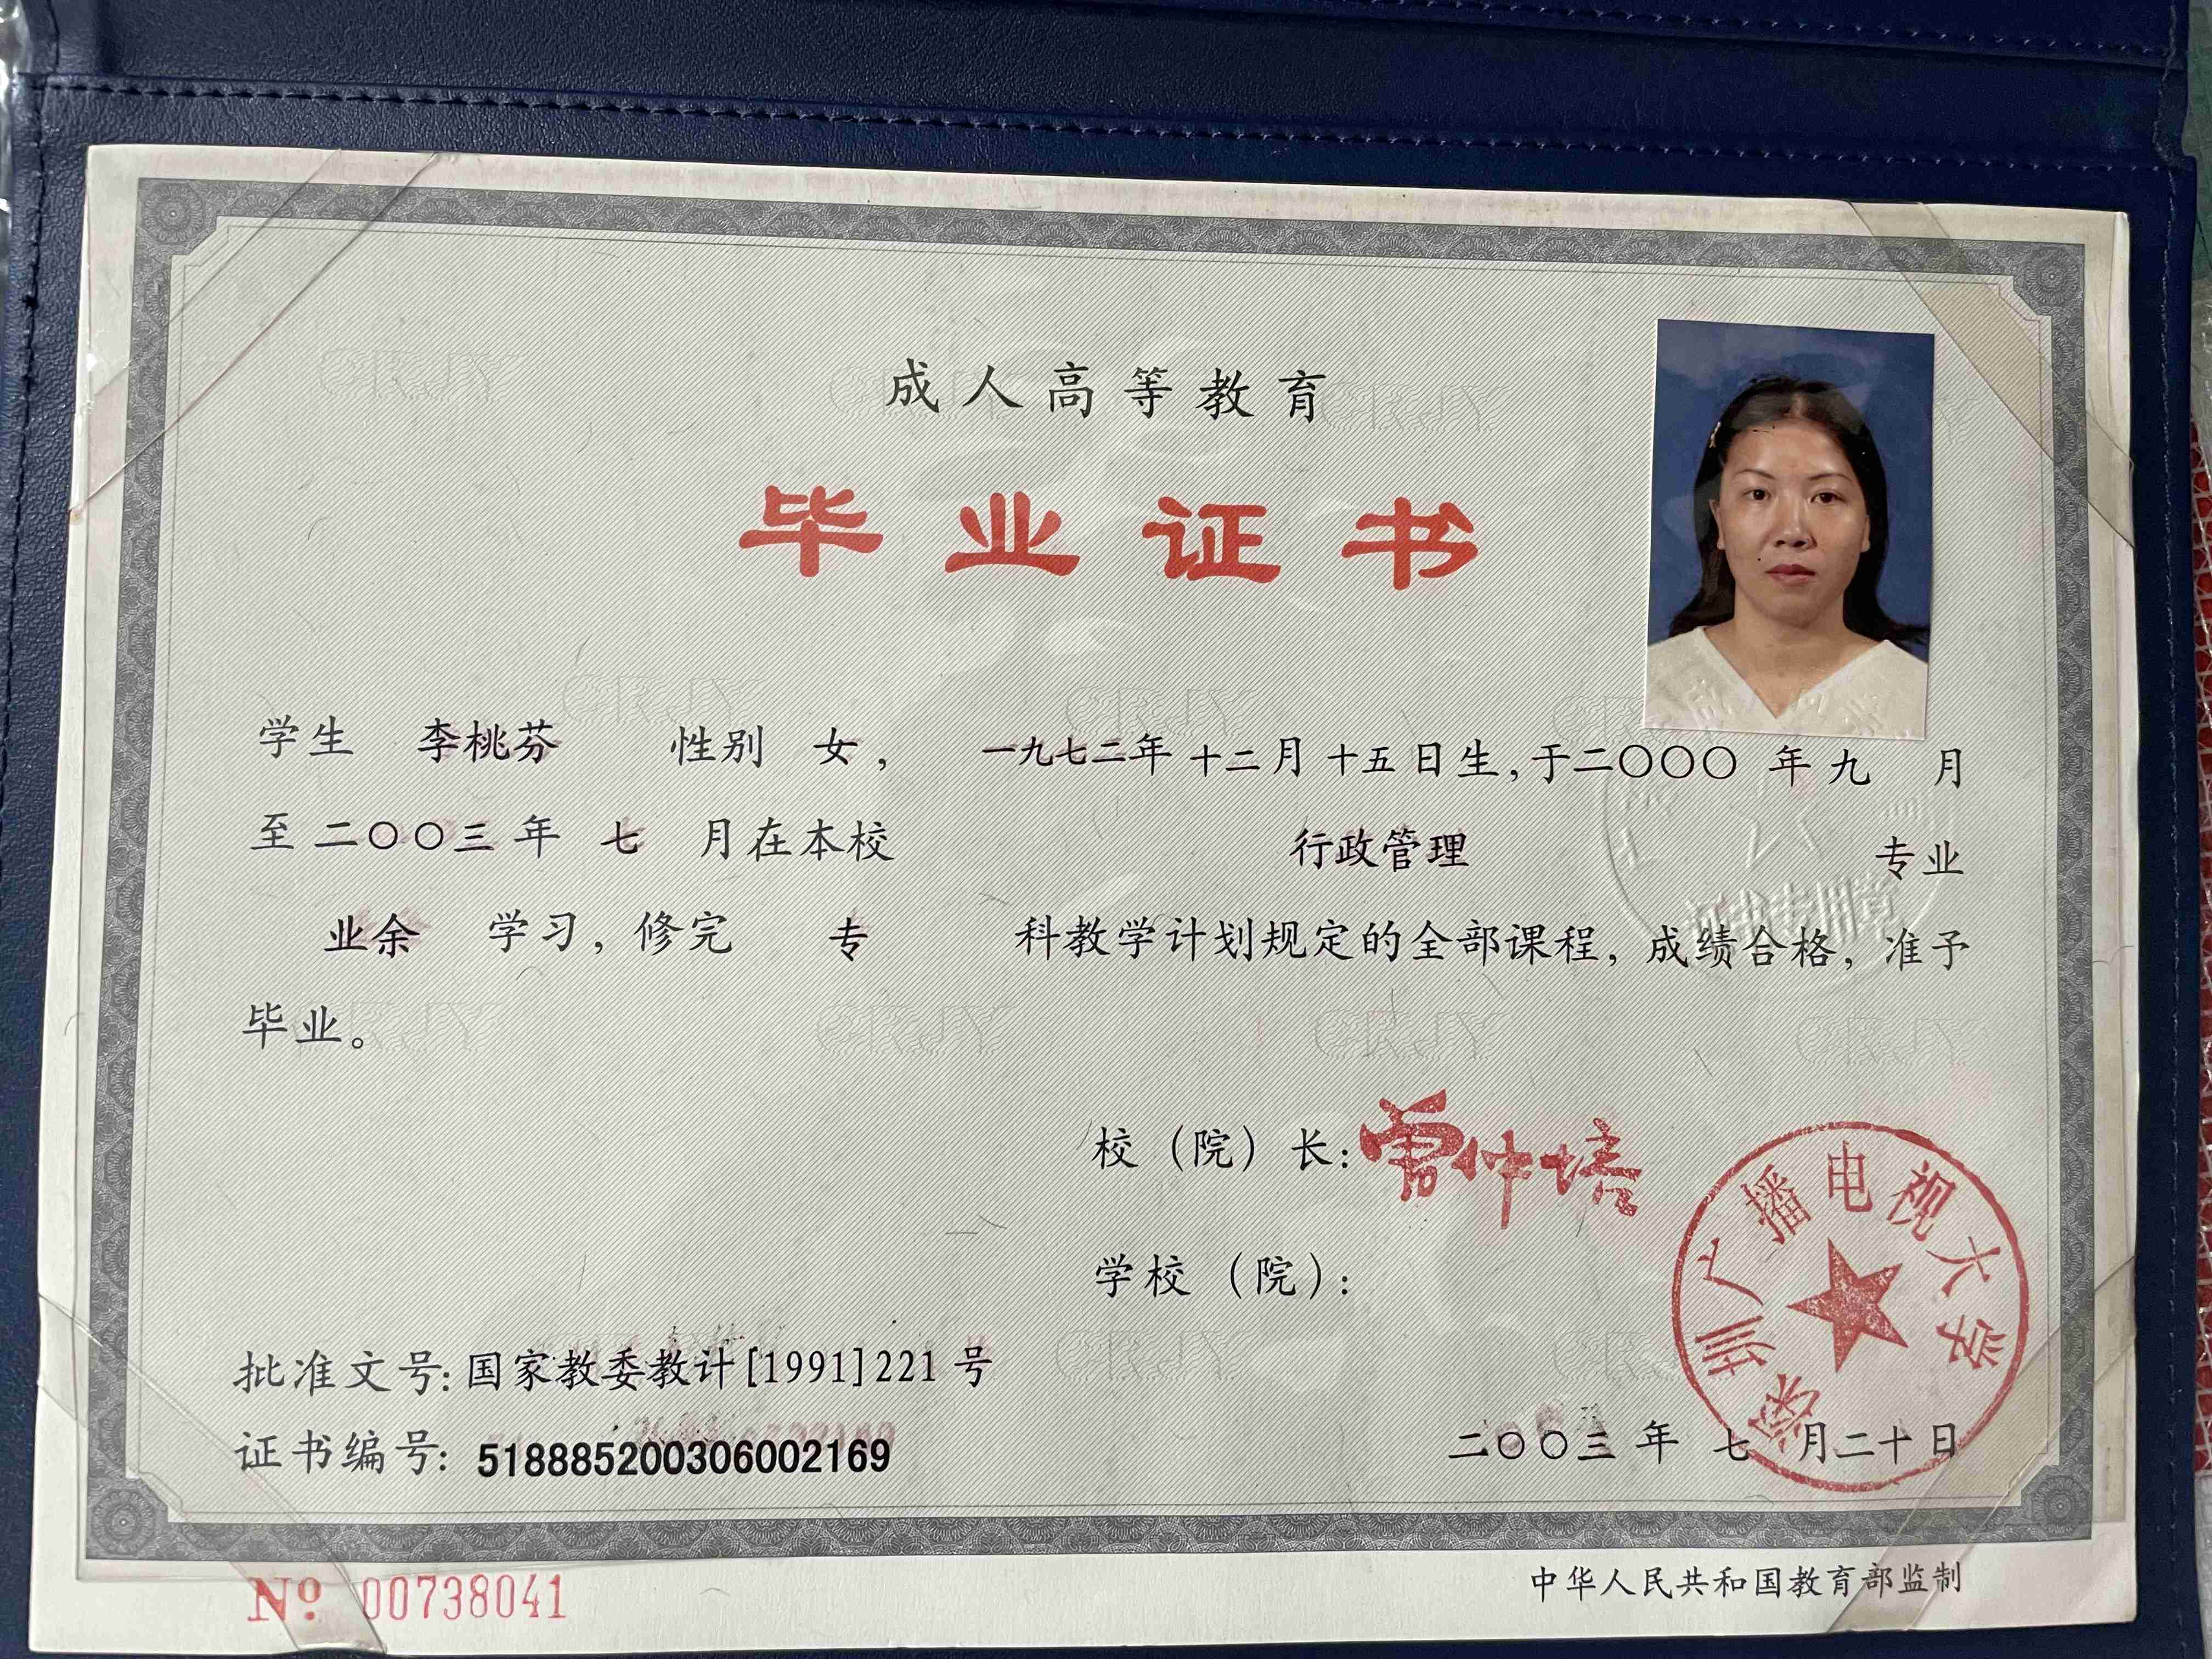 成人高等教育
毕业证书
学生 李桃芬 性别 女， 一九七二年 十二月 十五日生，于二〇〇〇 年 九 月
至 二〇〇三 年 七 月在本校 行政管理 专业
业余 学习，修完 专 科教学计划规定的全部课程，成绩合格，准予
毕业。
校（院）长：曾仲培
学校（院）：
深圳广播电视大学
批准文号：国家教委教计[1991]221 号
证书编号：518885200306002169
二〇〇三 年 七 月二十日
№ 00738041
中华人民共和国教育部监制